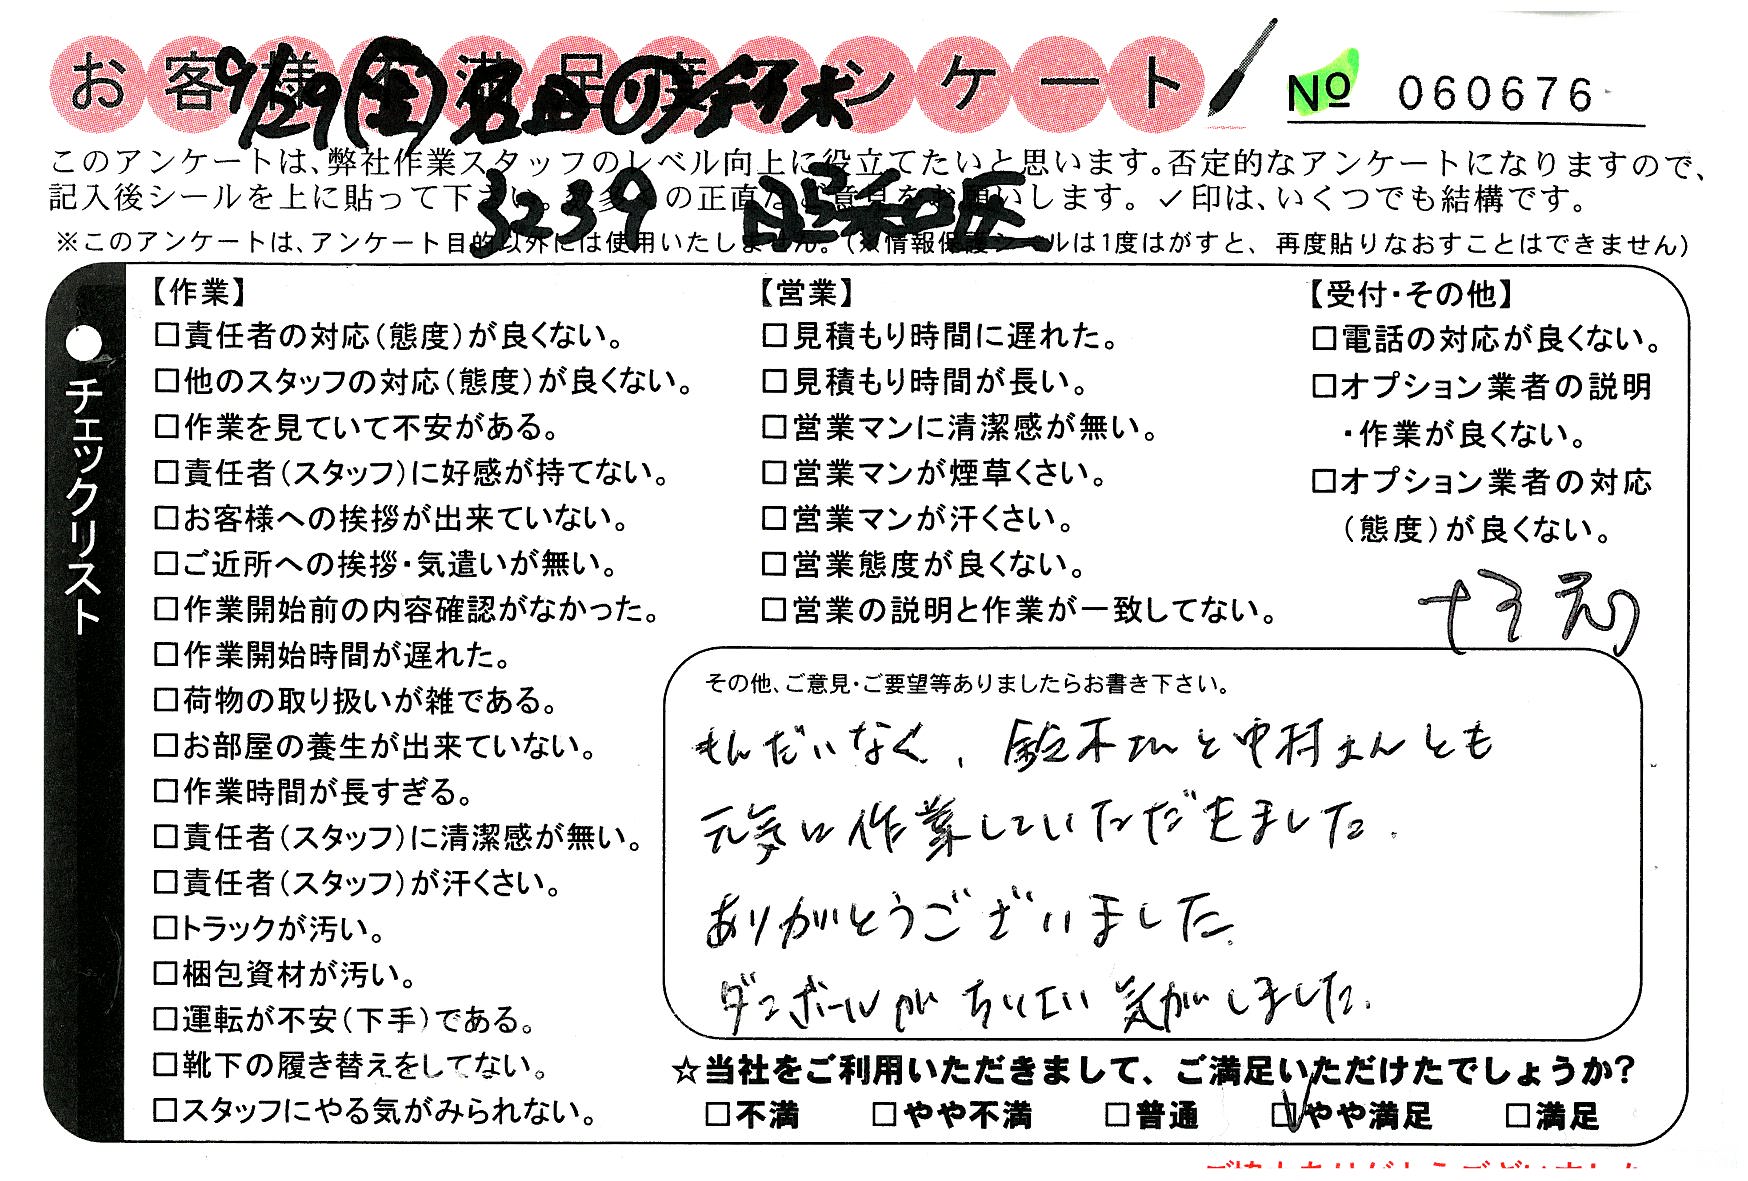 お客様不満足度アンケート
№ 060676
9/29(金)
このアンケートは、弊社作業スタッフのレベル向上に役立てたいと思います。否定的なアンケートになりますので、
記入後シールを上に貼って下さい。数多くの正直なご意見をお願いします。✓印は、いくつでも結構です。
3239
※このアンケートは、アンケート目的以外には使用いたしません。(※情報保護シールは1度はがすと、再度貼りなおすことはできません)
●チェックリスト
【作業】
□責任者の対応(態度)が良くない。
□他のスタッフの対応(態度)が良くない。
□作業を見ていて不安がある。
□責任者(スタッフ)に好感が持てない。
□お客様への挨拶が出来ていない。
□ご近所への挨拶・気遣いが無い。
□作業開始前の内容確認がなかった。
□作業開始時間が遅れた。
□荷物の取り扱いが雑である。
□お部屋の養生が出来ていない。
□作業時間が長すぎる。
□責任者(スタッフ)に清潔感が無い。
□責任者(スタッフ)が汗くさい。
□トラックが汚い。
□梱包資材が汚い。
□運転が不安(下手)である。
□靴下の履き替えをしてない。
□スタッフにやる気がみられない。
【営業】
□見積もり時間に遅れた。
□見積もり時間が長い。
□営業マンに清潔感が無い。
□営業マンが煙草くさい。
□営業マンが汗くさい。
□営業態度が良くない。
□営業の説明と作業が一致してない。
【受付・その他】
□電話の対応が良くない。
□オプション業者の説明
・作業が良くない。
□オプション業者の対応
(態度)が良くない。
その他、ご意見・ご要望等ありましたらお書き下さい。
もんだいなく、鈴木さんと中村さんとも
元気に作業していただきました。
ありがとうございました。
ダンボールがちいさい気がしました。
☆当社をご利用いただきまして、ご満足いただけたでしょうか?
□不満 □やや不満 □普通 ☑やや満足 □満足
ご協力ありがとうございました